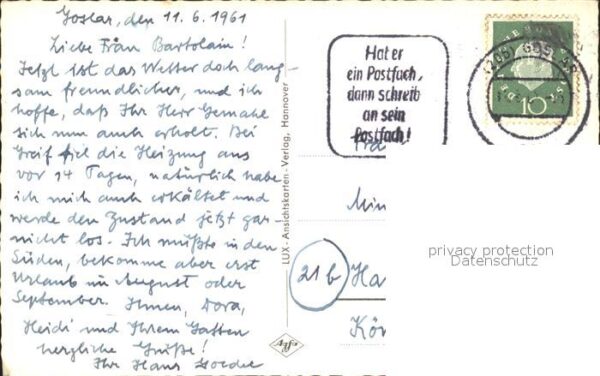 Goslar, den 11.6.1961
Liebe Frau Bartolain!
Jetzt ist das Wetter doch lang-
sam freundlicher, und ich
hoffe, daß Ihr Herr Gemahl
sich nun auch erholt. Bei
Greif fiel die Heizung aus
vor 14 Tagen, natürlich habe
ich mich auch erkältet und
werde den Zustand jetzt gar
nicht los. Ich müßte in den
Süden, bekomme aber erst
Urlaub im August oder
September. Ihnen, Dora,
Heidi und Ihrem Gatten
herzliche Grüße!
Ihr Hans
LUX-Ansichtskarten-Verlag, Hannover
Agfa
Hat er
ein Postfach,
dann schreib
an sein
Postfach!
10
21b
Ha
Kön
privacy protection
Datenschutz